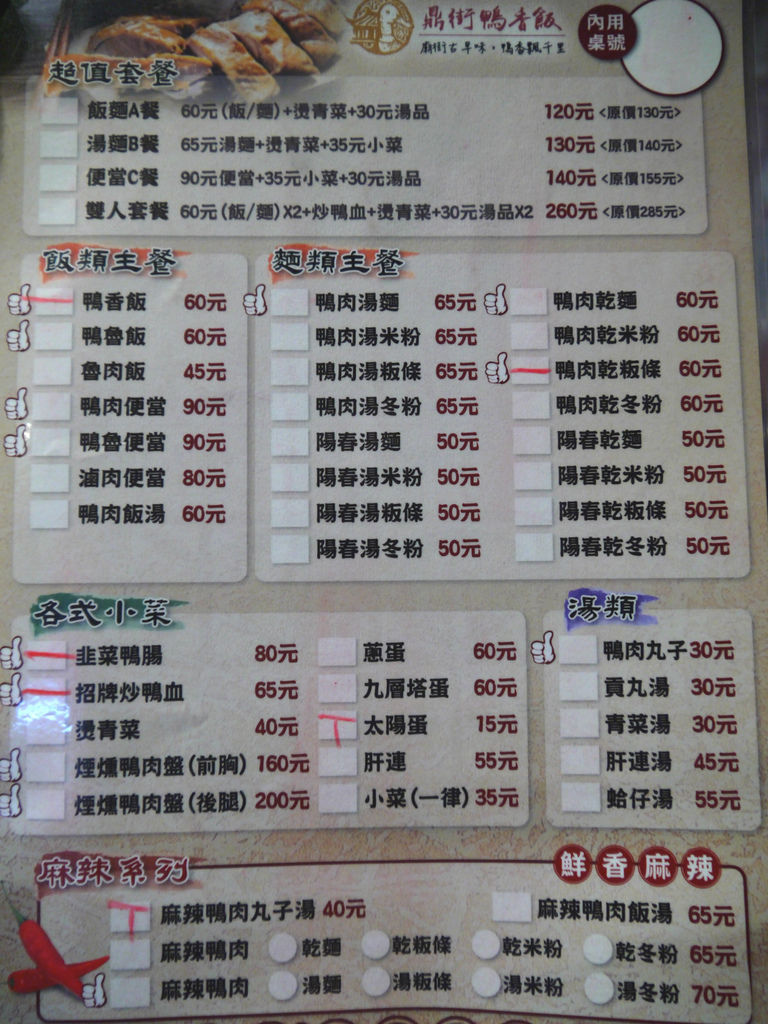 鼎街鴨香飯
廟街古早味，鴨香飄千里
內用
桌號
超值套餐
飯麵A餐 60元(飯/麵)+燙青菜+30元湯品 120元<原價130元>
湯麵B餐 65元湯麵+燙青菜+35元小菜 130元<原價140元>
便當C餐 90元便當+35元小菜+30元湯品 140元<原價155元>
雙人套餐 60元(飯/麵)X2+炒鴨血+燙青菜+30元湯品X2 260元<原價285元>
飯類主餐
鴨香飯 60元
鴨魯飯 60元
魯肉飯 45元
鴨肉便當 90元
鴨魯便當 90元
滷肉便當 80元
鴨肉飯湯 60元
麵類主餐
鴨肉湯麵 65元 鴨肉乾麵 60元
鴨肉湯米粉 65元 鴨肉乾米粉 60元
鴨肉湯粄條 65元 鴨肉乾粄條 60元
鴨肉湯冬粉 65元 鴨肉乾冬粉 60元
陽春湯麵 50元 陽春乾麵 50元
陽春湯米粉 50元 陽春乾米粉 50元
陽春湯粄條 50元 陽春乾粄條 50元
陽春湯冬粉 50元 陽春乾冬粉 50元
各式小菜
韭菜鴨腸 80元 蔥蛋 60元
招牌炒鴨血 65元 九層塔蛋 60元
燙青菜 40元 太陽蛋 15元
煙燻鴨肉盤(前胸) 160元 肝連 55元
煙燻鴨肉盤(後腿) 200元 小菜(一律) 35元
湯類
鴨肉丸子 30元
貢丸湯 30元
青菜湯 30元
肝連湯 45元
蛤仔湯 55元
麻辣系列 鮮香麻辣
麻辣鴨肉丸子湯 40元 麻辣鴨肉飯湯 65元
麻辣鴨肉 乾麵 乾粄條 乾米粉 乾冬粉 65元
麻辣鴨肉 湯麵 湯粄條 湯米粉 湯冬粉 70元